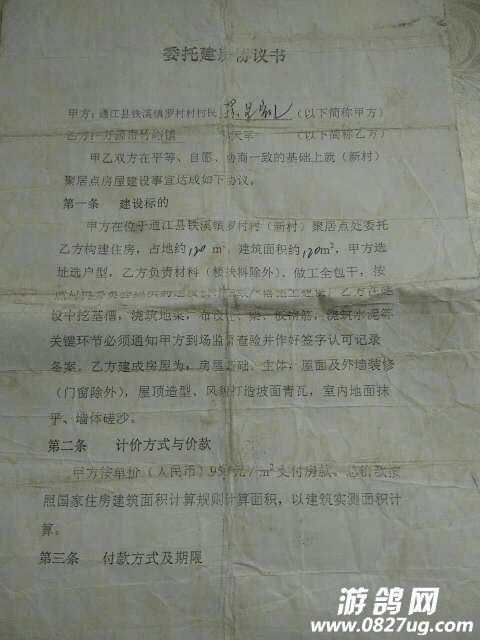 委托建房协议书
甲方：通江县铁溪镇罗村村村民 （以下简称甲方）
乙方：万源市竹峪镇 （以下简称乙方）
甲乙双方在平等、自愿、协商一致的基础上就（新村）
聚居点房屋建设事宜达成如下协议。
第一条 建设标的
甲方在位于通江县铁溪镇罗村村（新村）聚居点处委托
乙方构建住房，占地约120m²，建筑面积约120m²，甲方选
址选户型，乙方负责材料（ 除外）、做工全包干，按
乙方在建
设中挖基槽，浇筑地梁，布设柱、梁、板钢筋，浇筑水泥等
关键环节必须通知甲方到场监督查验并作好签字认可记录
备案。乙方建成房屋为，房屋基础、主体，屋面及外墙装修
（门窗除外），屋顶造型、风貌打造坡面青瓦，室内地面抹
平、墙体磋沙。
第二条 计价方式与价款
甲方按单价（人民币） 元/m²支付房款。总价款按
照国家住房建筑面积计算规则计算面积，以建筑实测面积计
算。
第三条 付款方式及期限
游鸽网
www.0827ug.com